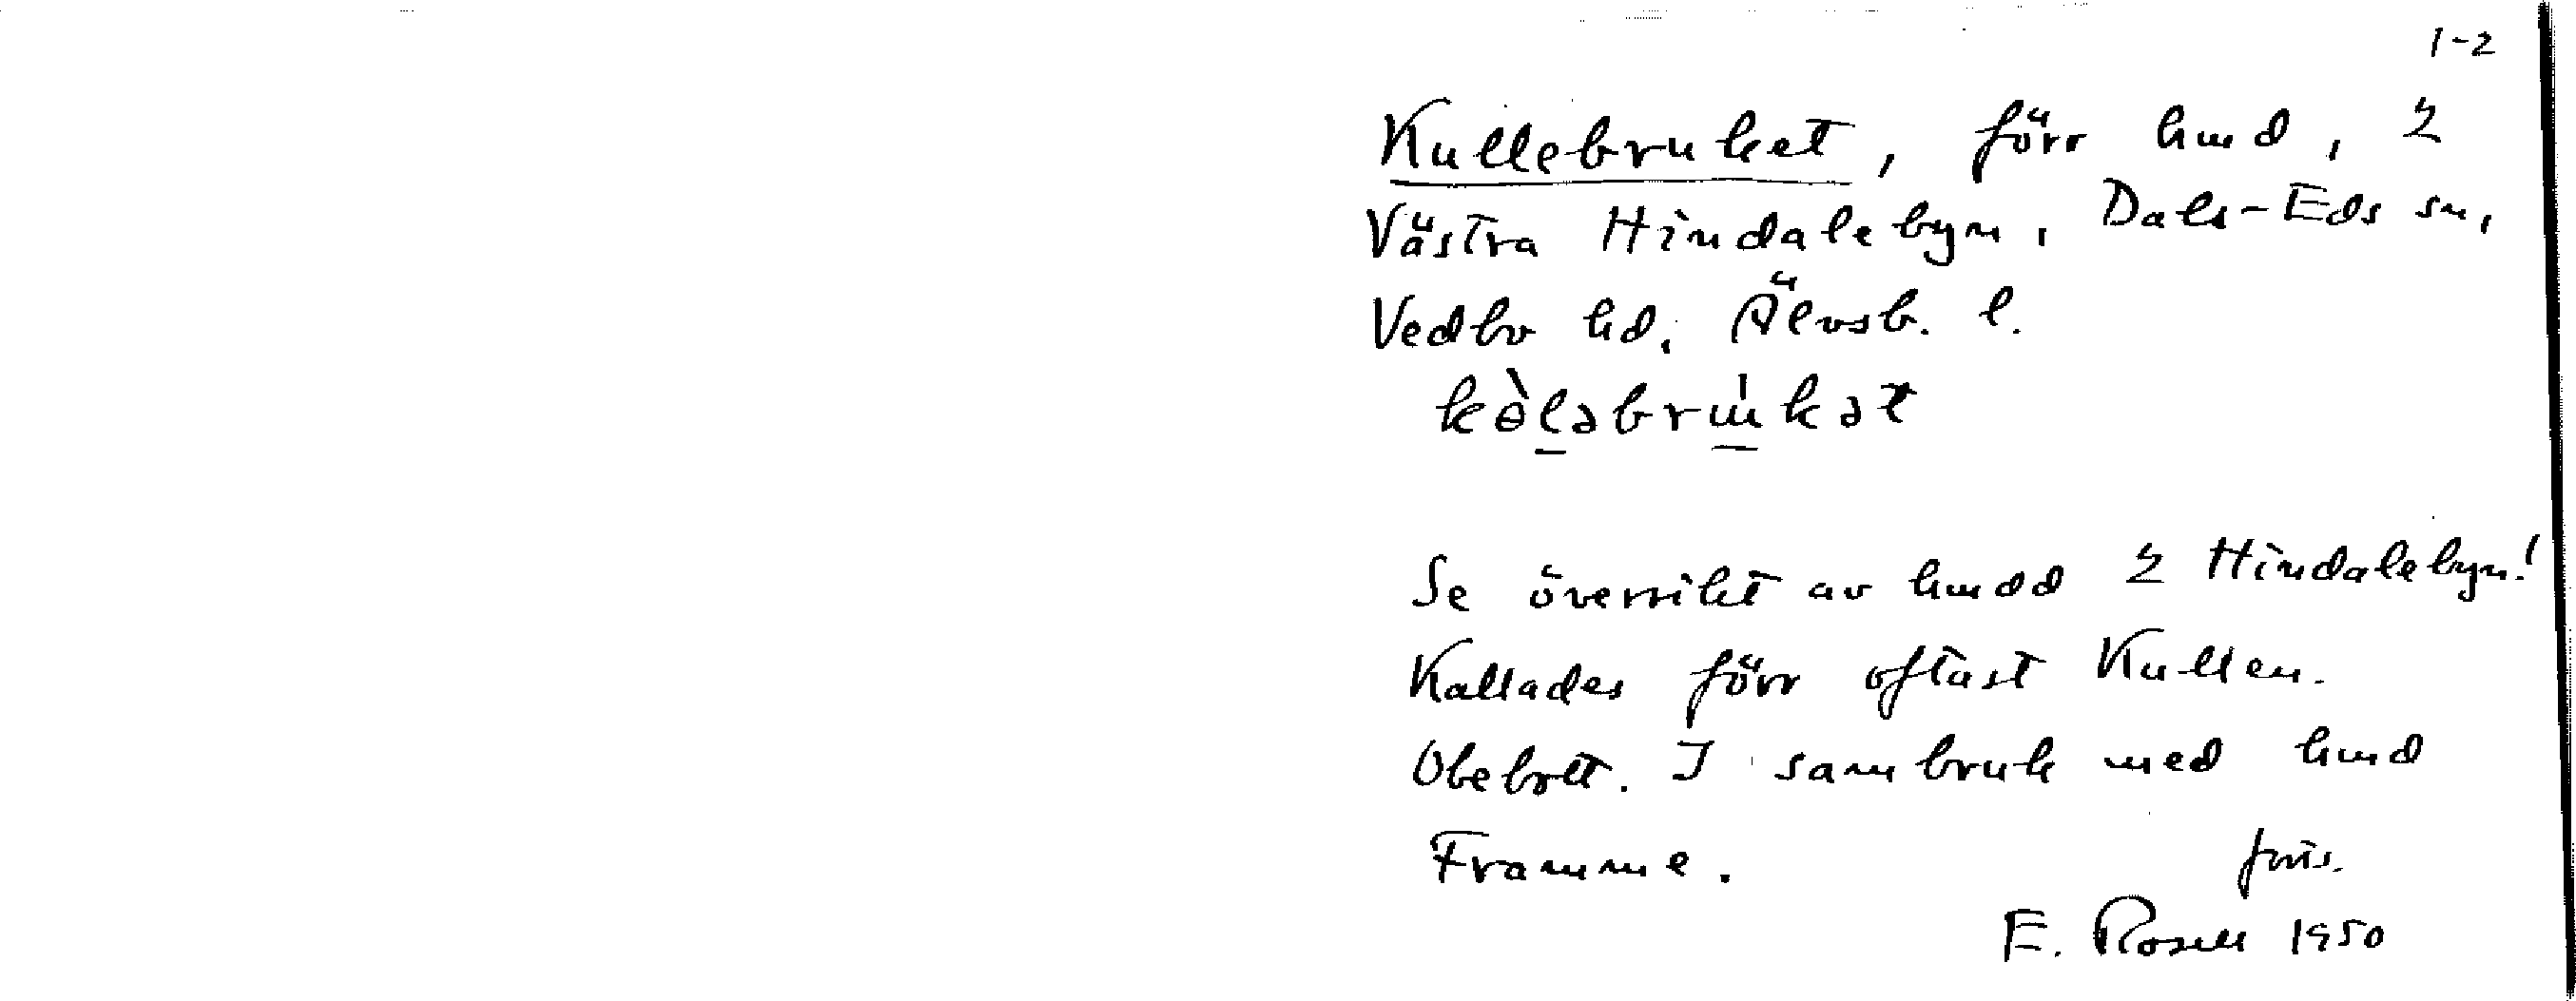 1-2
Kullebruket, förr hmd, 2
Västra Hindalebyn, Dals-Eds sn,
Vedbo hd. Älvsb. l.
kɵ̀lәbrɯ́kәt
Se översikt av hmdd 2 Hindalebyn!
Kallades förr oftast Kullen.
Obebott. I sambruk med hmd
Framme.
E. Rosell 1950